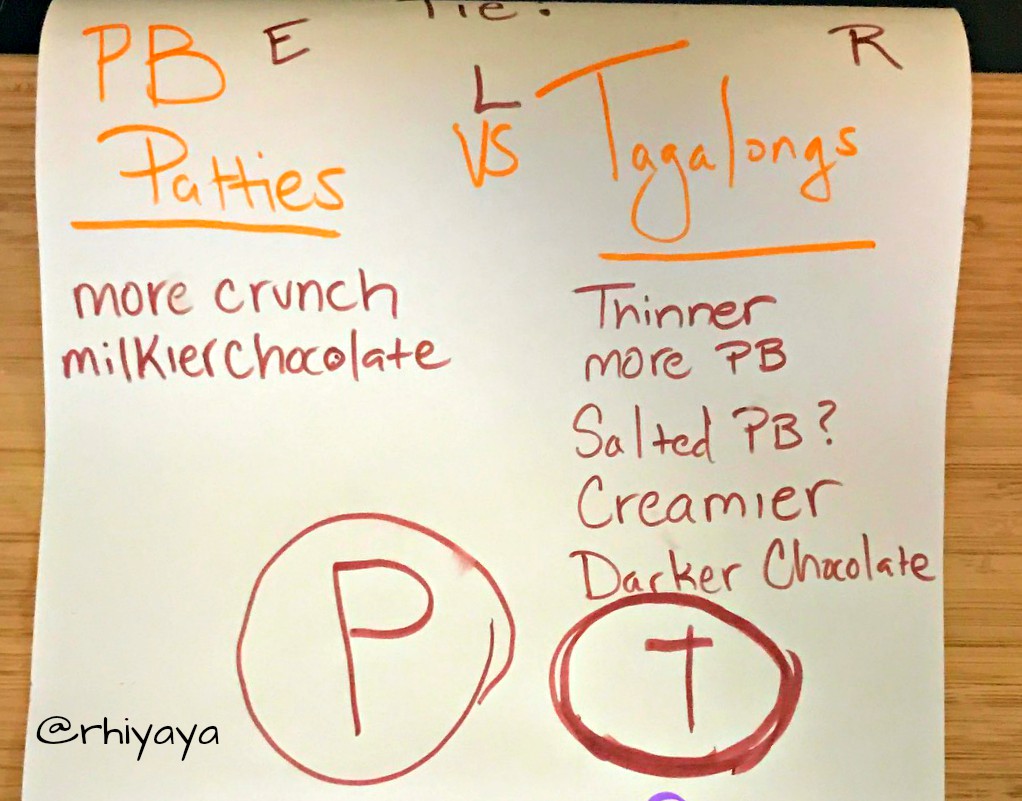 Tie:
PB E
L
R
Patties
VS
Tagalongs
more crunch
milkier chocolate
Thinner
more PB
Salted PB?
Creamier
Darker Chocolate
P
T
@rhiyaya